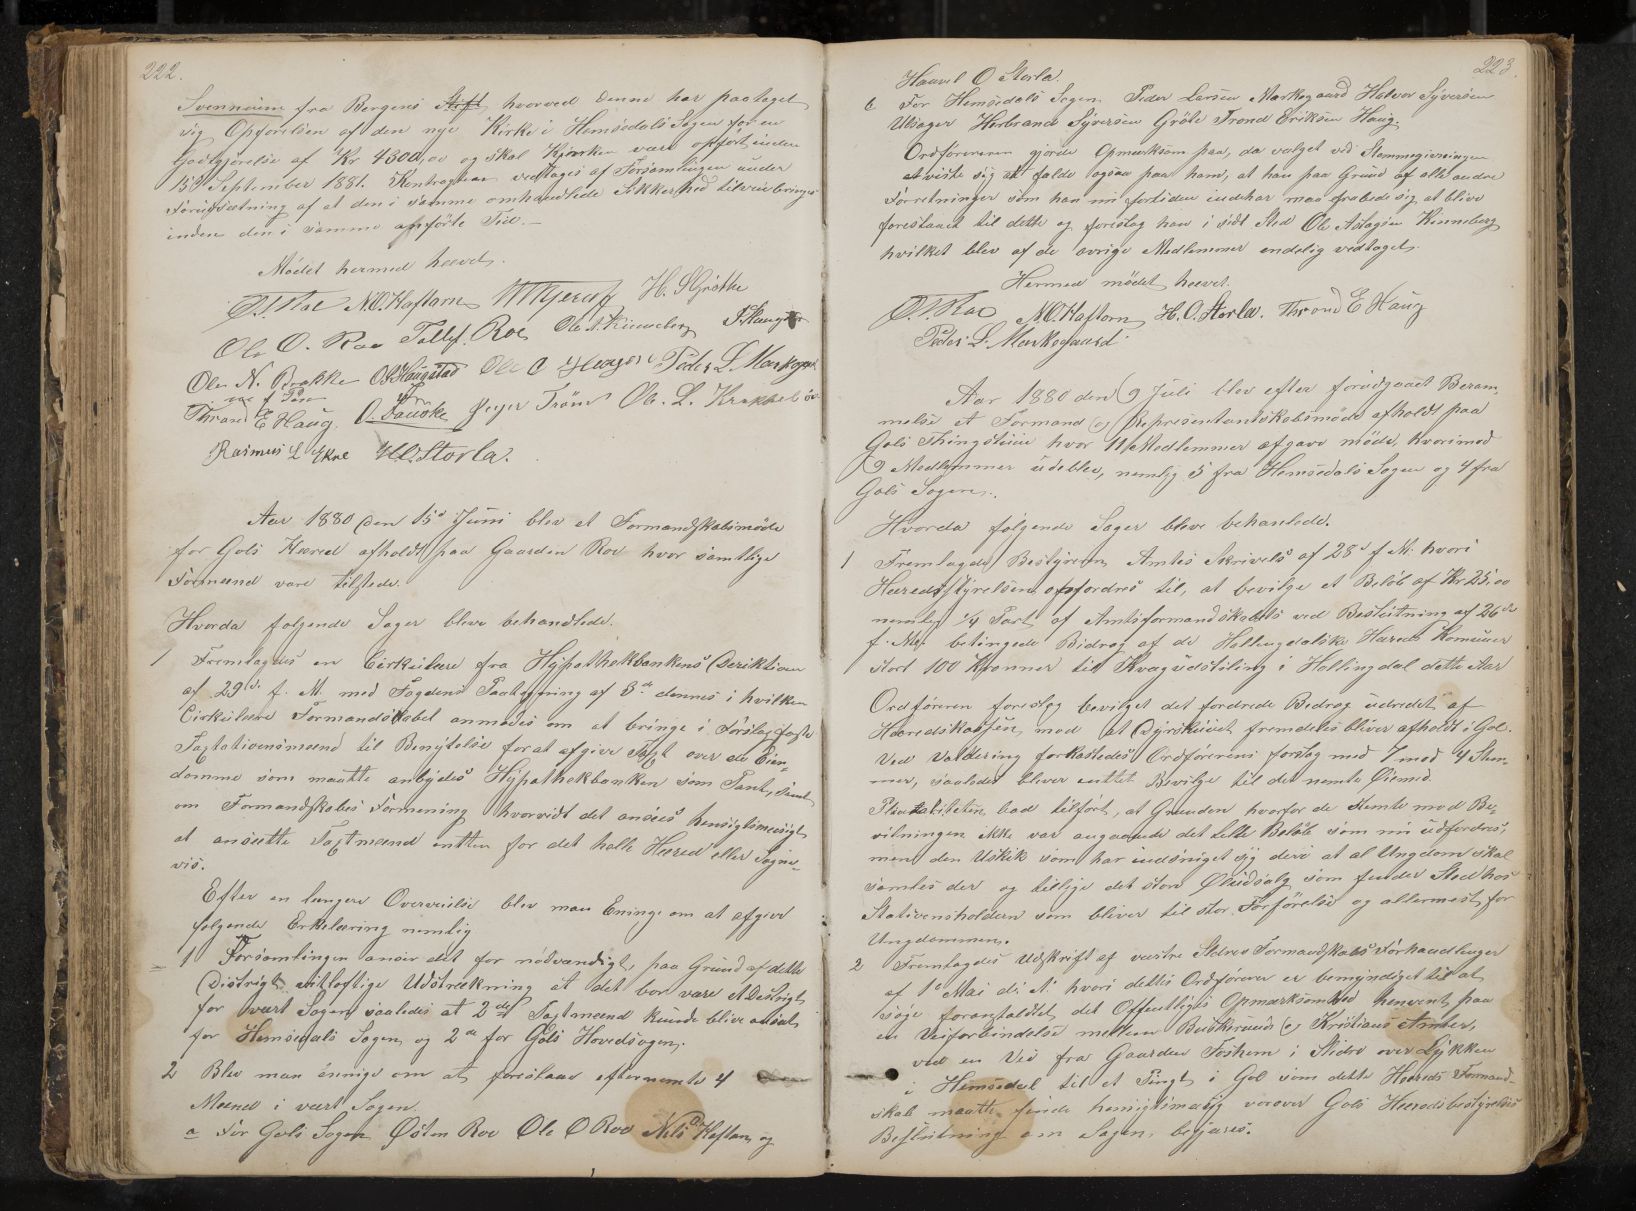 222.
Svennöine fra Bergens Stift, hvorved denne har paataget
sig Opförelsen af den nye Kirke i Hemsedals Sogn for en
Godtgjörelse af Kr 4300,00 og skal Kirken være opfört inden
15 September 1881. Kontragten vedtages af Forsamlingen under
Forudsætning af at den i samme omhandlede Sikkerhed tilveiebringes
inden den i samme opförte Tid. —
Mödet hermed hævet.
N.O. Haftorn H. S. Gröthe
Ole O. Roe Tollef Roe Ole A. Kinneberg
Ole N. Brakke O. Haugstad Peder L. Markegaard
Thrond E Haug. Ole L.
Rasmus L H.O. Storla.
Aar 1880 den 15d Juni blev et Formandskabsmöde
for Gols Hæred afholdt paa Gaarden Roe hvor samtlige
Formænd vare tilstede.
Hvorda folgende Sager bleve behandlede.
1 Fremlagdes en Cirkulære fra Hypothekbankens Direktion
af 29de f. M. med Fogdens Paategning af 8de dennes i hvilken
Cirkulære Formandskabet anmodes om at bringe i Forslag faste
Taxtationsmænd til Benyttelse for at afgive Taxt over de Eien-
domme som maatte anbydes Hypothekbanken som Pant, samt
om Formandskabets Formening hvorvidt det ansees hensigtsmæsigt
at ansætte Taxtmænd entten for det halle Hæred eller Sogne-
vis.
Efter en længere Overveielse blev man Eninge om at afgive
folgende Erkelæring nemlig
1 Forsamlingen anseer det for nödvendigt, paa Grund af dette
Distrigts vitloftige Udstrækning at det bor være et Distrigt
for vært Sogn, saaledes at 2de Taxtmænd kunde blive ansat
for Hemsedals Sogn, og 2de for Gols Hovedsogn.
2 Blev man enige om at foreslaae efternemte 4
Mænd i vært Sogn.
a For Gols Sogn Østen Roe Ole O Roe Nils Haftorn og
223.
Haavel O Storla.
b For Hemsedals Sogn Peder Larsen Markegaard Halvor Syversen
Ulsager Herbrand Syversen Gröte Trond Eriksen Haug.
Ordföreren gjorde Opmærksom paa, da valget ved Stemmegivningen
at viste sig at falde ogsaa paa ham, at han paa Grund af alle andre
Forretninger som han nu fortiden indehar maa frabede sig at blive
foreslaaet til dette og foreslog han i sidt Sted Ole Aslagsen Kinneberg
hvilket blev af de ovrige Medlemmer endelig vedtaget.
Hermed mödet hævet.
N.O. Haftorn H. O. Storla. Thrond E Haug
Peder L. Markegaard
Aar 1880 den 9 Juli blev efter forudgaaet Beram-
melse et Formand og Representantskabsmöde afholdt paa
Gols Thingstuue hvor 11 Medlemmer afgave möde, hvorimod
9 Medlemmer udeblev, nemlig 5 fra Hemsedals Sogn og 4 fra
Gols Sogn.
Hvorda folgende Sager bleve behanlede.
1 Fremlagdes Bestyreren Amtes Skrivels af 28d f M. hvori
Hæredstyrelsen opfordres til, at bevilge et Belöb af Kr 25,00
nemlig 1/4 Part af Amtsformandskabets ved Beslutning af 26de
f. M. betingede Bidrag af de Hallingdalske Hæreds Komuner
stort 100 Kronner til Kvægudstiling i Hallingdal dette Aar
Ordföreren foreslog bevilget det fordrede Bedrag udredet af
Hæredskassen, mod at Dyrskuuet fremdeles bliver afholdt i Gol.
Ved Voldtering forkastedes Ordförerens forslag med 7 mod 4 Stem-
mer, saaledes bliver inttet Bevilge til det nemte Öiemed.
Pluralliteten bad tilfört, at Grunden hvorfor de stemte mod Be-
vilningen ikke var angaaende det lille Belöb som nu udfordres,
men den Uskik som har indsniget sig deri at al Ungdom skal
samles der og tillige det store Öludsalg som finder Sted hos
Stativensholderen som bliver til stor Forförelse og allermest for
Ungdommen.
2 Fremlagdes Udskrift af væstre Slidres Formandskabs Forhandlinger
af 1ste Mai d. A. hvori dettes Ordförerer er bemyndiget til at
söge foranstaldtet det Offentliges Opmærksomhed henvent paa
en Veiforbindelse mellem Buskeruds og Kristians Amter,
ved en Vei fra Gaarden Foshem i Slidre over Lykken
i Hemsedal til et Pungt i Gol som dette Hæreds Formand-
skab maatte finde hensigtsmesig vorover Gols Hæredsbestyrelses
Beslutning om Sagen, begjæres.